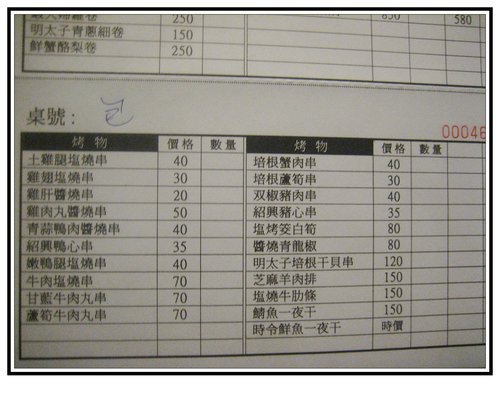 250
明太子青蔥細卷 150
鮮蟹酪梨卷 250
850 580
桌號:
00046
烤 物 價格 數量
土雞腿塩燒串 40
雞翅塩燒串 30
雞肝醬燒串 20
雞肉丸醬燒串 50
青蒜鴨肉醬燒串 40
紹興鴨心串 35
嫩鴨腿塩燒串 40
牛肉塩燒串 70
甘藍牛肉丸串 70
蘆筍牛肉丸串 70
烤 物 價格 數量
培根蟹肉串 40
培根蘆筍串 30
双椒豬肉串 40
紹興豬心串 35
塩烤筊白筍 80
醬燒青龍椒 80
明太子培根干貝串 120
芝麻羊肉排 150
塩燒牛肋條 150
鯖魚一夜干 150
時令鮮魚一夜干 時價